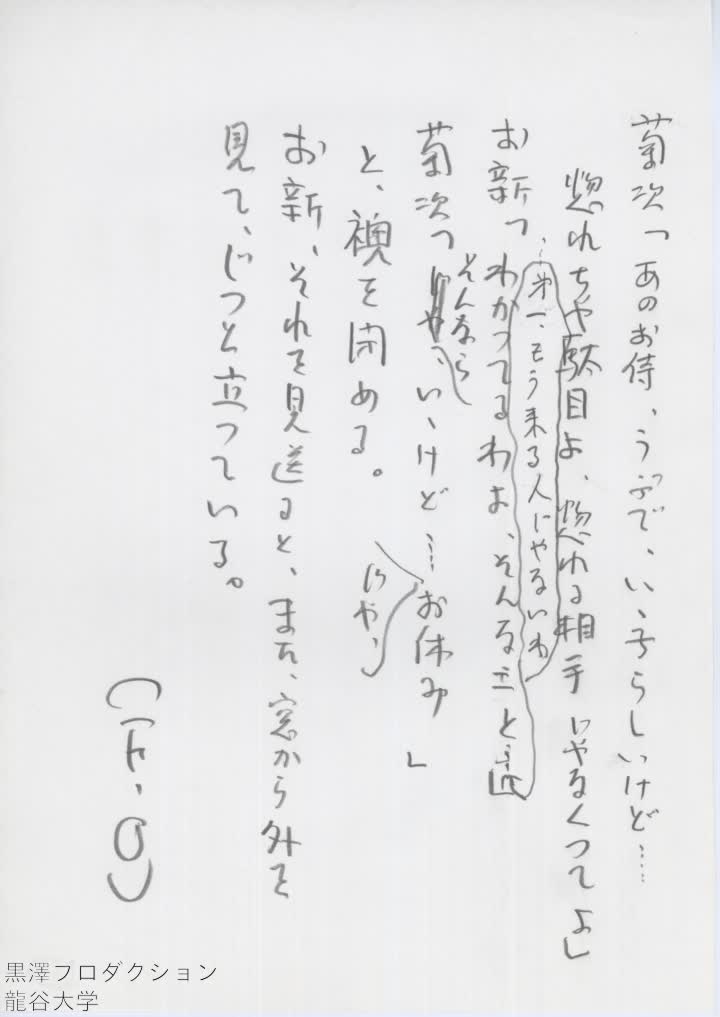 菊次「あのお侍、うぶで、いゝ子らしいけど……
惚れちや駄目よ、惚れる相手じやなくつてよ」
…第一、もう来る人じやないわ
お新「わかつてるわよ、そんなこと…
そんなら
菊次「じや、いゝけど……お休み」
じや、
と、襖を閉める。
お新、それを見送ると、また、窓から外を
見て、じつと立つている。
(F・O)
黒澤プロダクション
龍谷大学